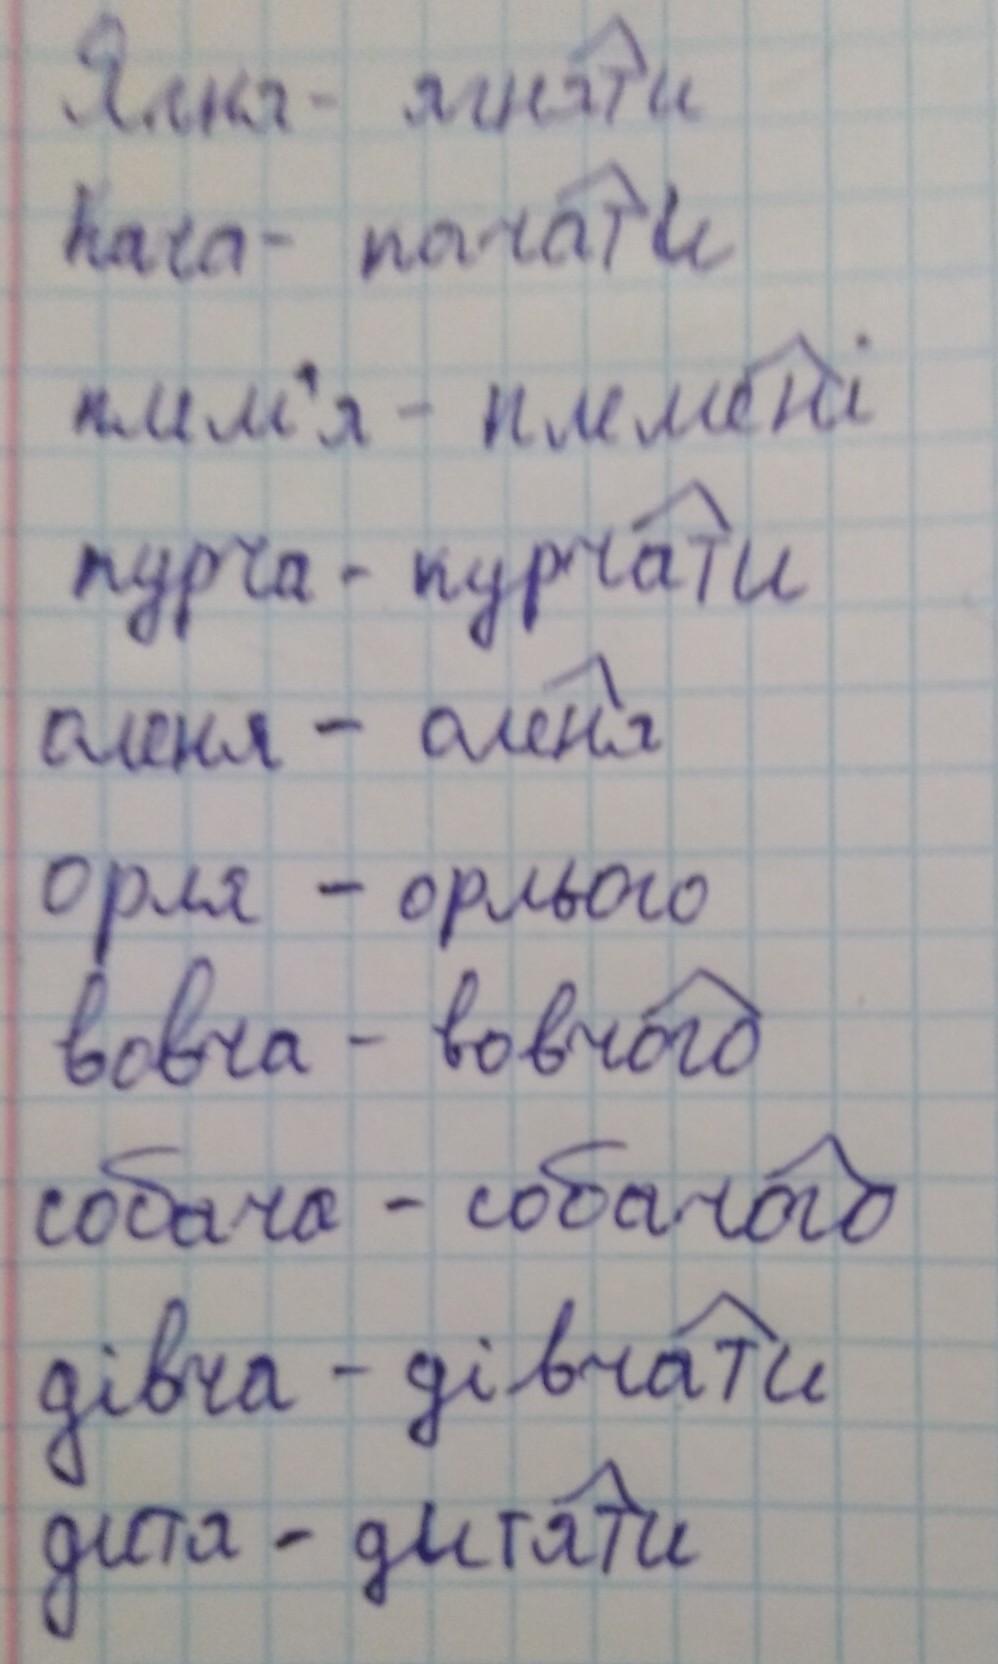 Ягня - ягняти
кача - качати
плем'я - племені
курча - курчати
оленя - оленя
орля - орлього
вовча - вовчого
собача - собачого
дівча - дівчати
дитя - дитяти